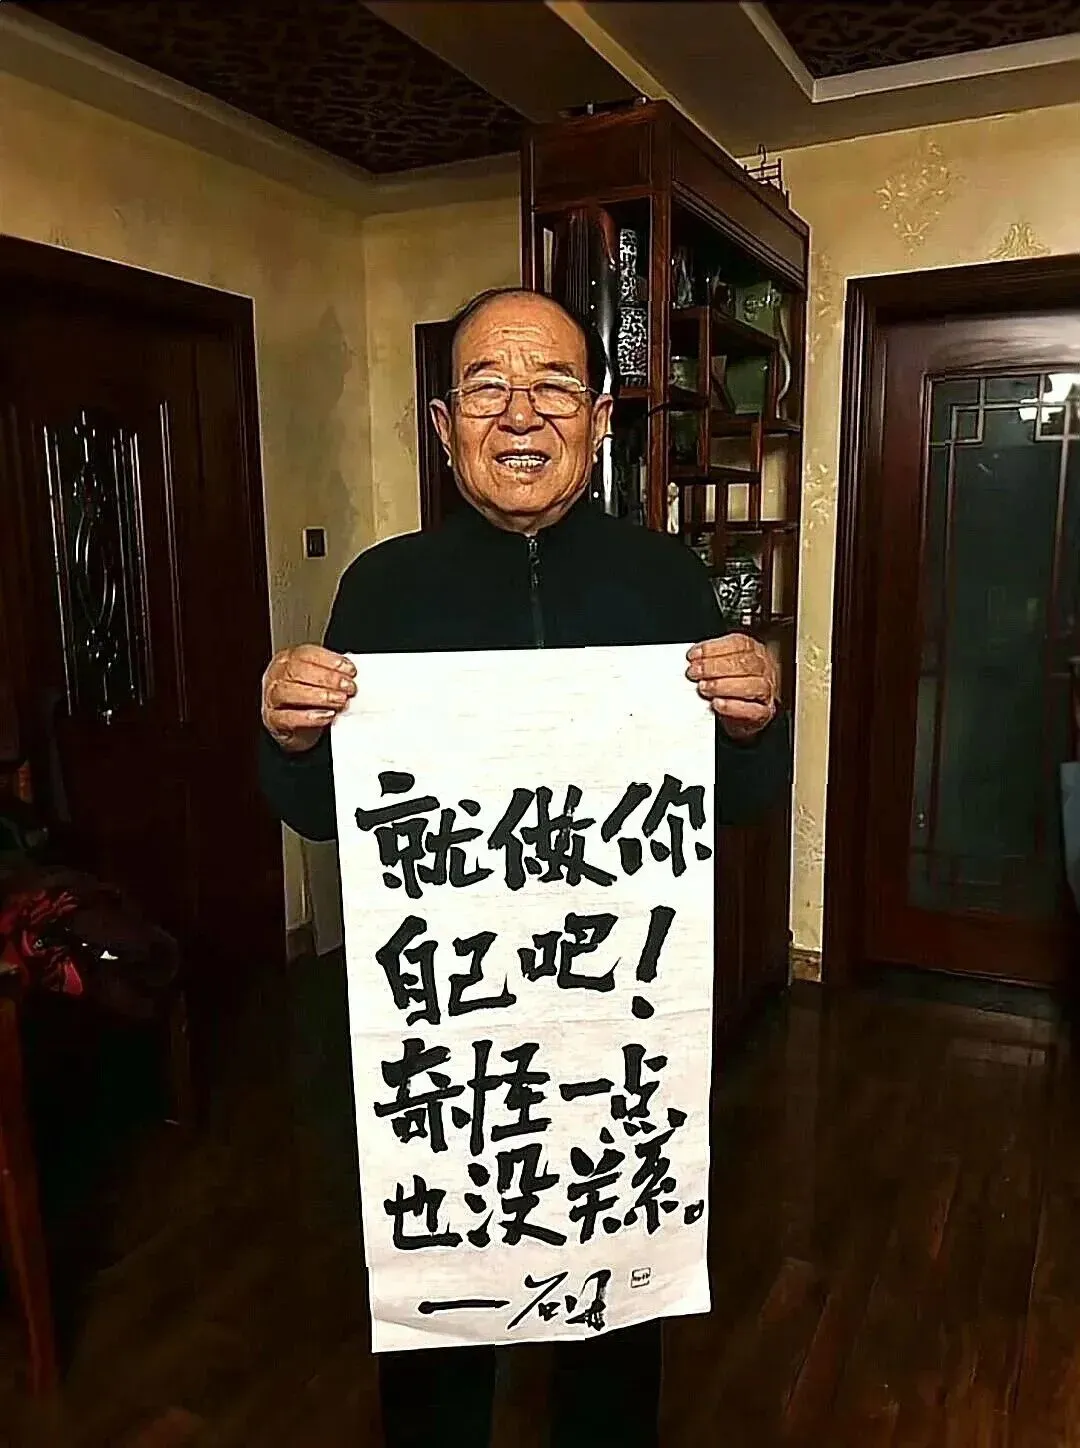 就做你
自己吧！
奇怪一点
也没关系。